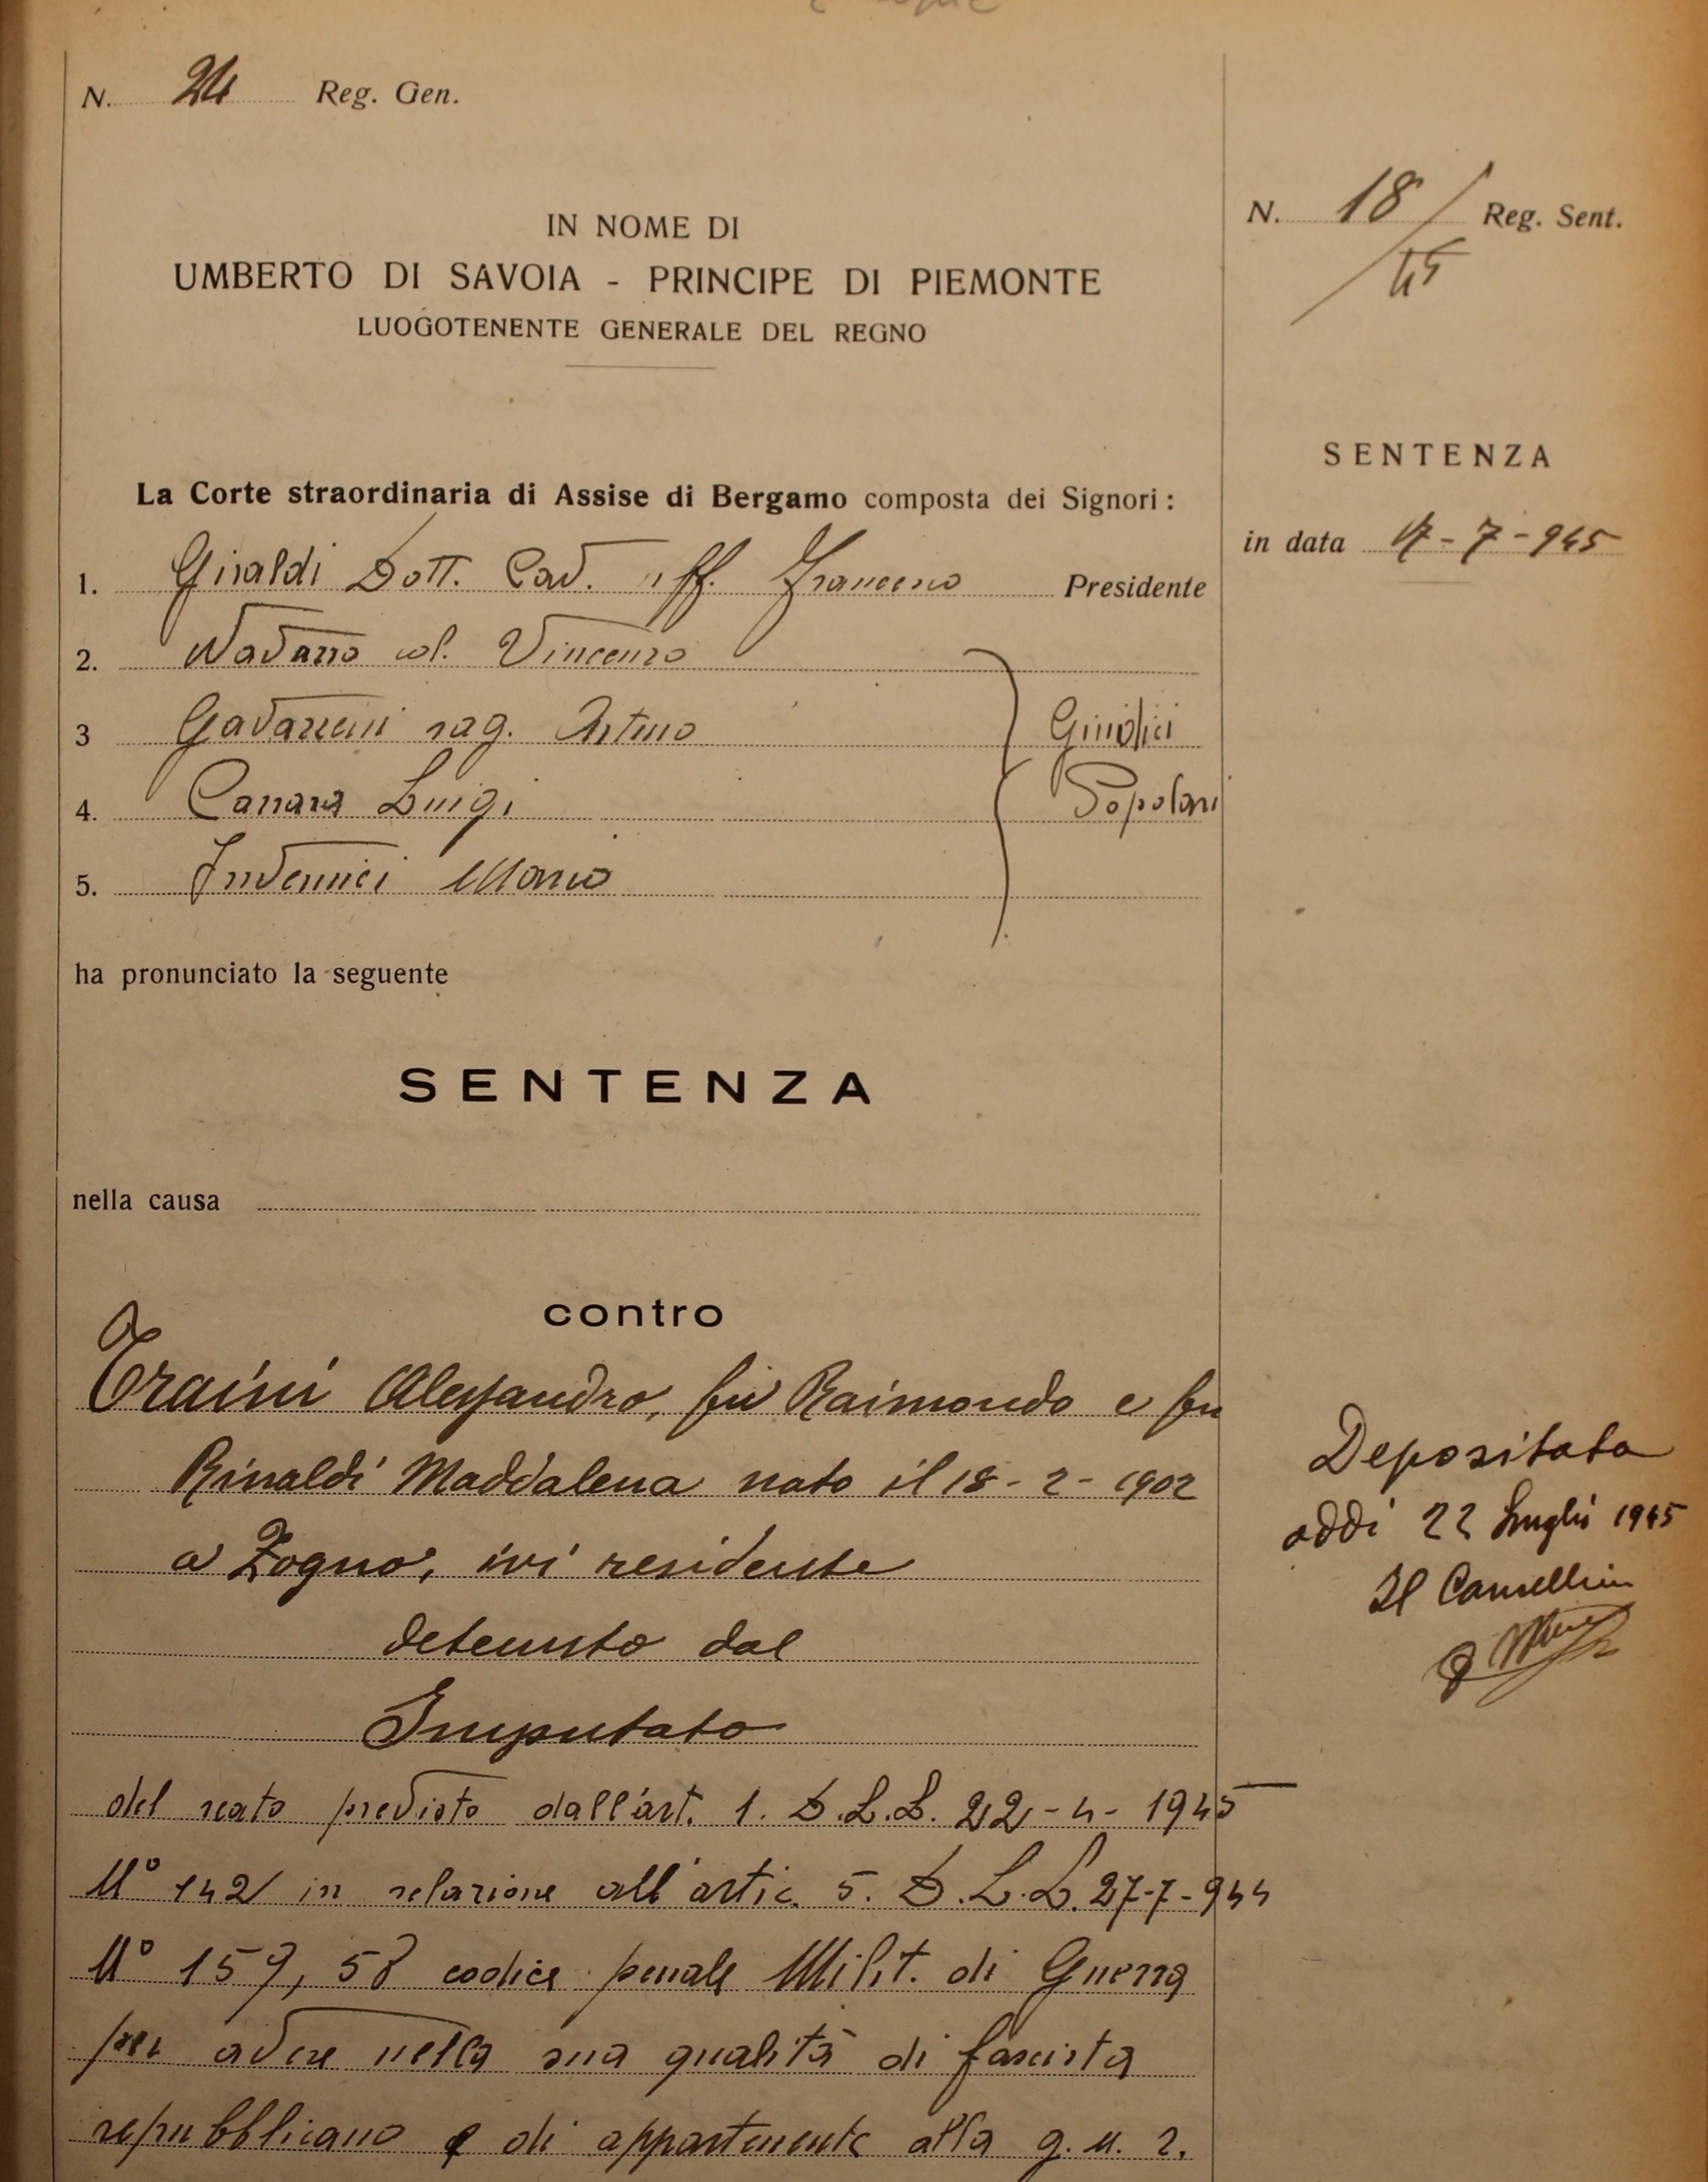 N. 24 Reg. Gen.
N. 18/45 Reg. Sent.
IN NOME DI
UMBERTO DI SAVOIA - PRINCIPE DI PIEMONTE
LUOGOTENENTE GENERALE DEL REGNO
SENTENZA
in data 4-7-945
La Corte straordinaria di Assise di Bergamo composta dei Signori:
1. Giraldi Dott. Cav. uff. Francesco Presidente
2. Navarro col. Vincenzo
3 Gavazzeni rag. Arturo Giudici
4. Carrara Luigi Popolari
5. Invernici Mario
ha pronunciato la seguente
SENTENZA
nella causa
contro
Traini Alessandro, fu Raimondo e fu
Rinaldi Maddalena nato il 18-2-1902
a Zogno, ivi residente
detenuto dal
Imputato
Depositata
addi 22 Luglio 1945
Il Cancelliere
del reato previsto dall'art. 1. D.L.L. 22-4-1945
N° 142 in relazione all'artic. 5. D.L.L. 27-7-944
N° 159, 58 codice penale Milit. di Guerra
per avere nella sua qualità di fascista
repubblicano e di appartenente alla g.n.r.